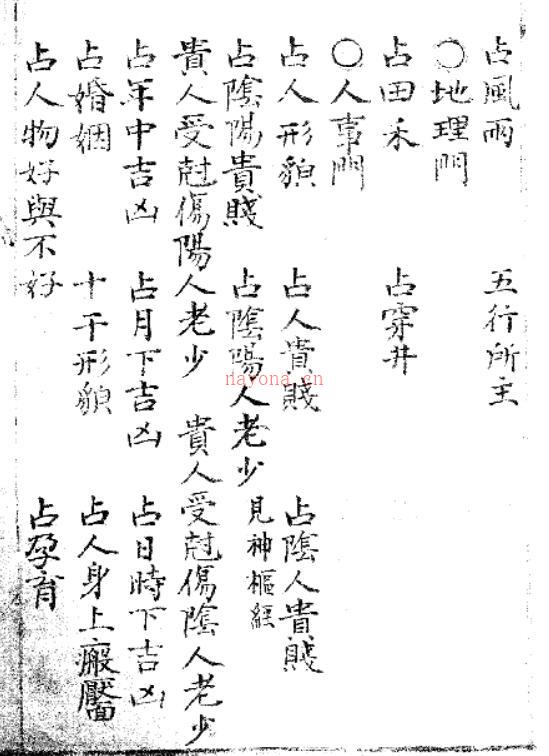 占風雨　五行所主
○地理門
占田禾　占穿井
○人事門
占人形貌　占人貴賤　占陰人貴賤
占陰陽貴賤　占陰陽人老少　見神樞経
貴人受尅傷陽人老少　貴人受尅傷陰人老少
占年中吉凶　占月下吉凶　占日時下吉凶
占婚姻　十干形貌　占人身上瘢靨
占人物好與不好　占孕育
nayona.cn